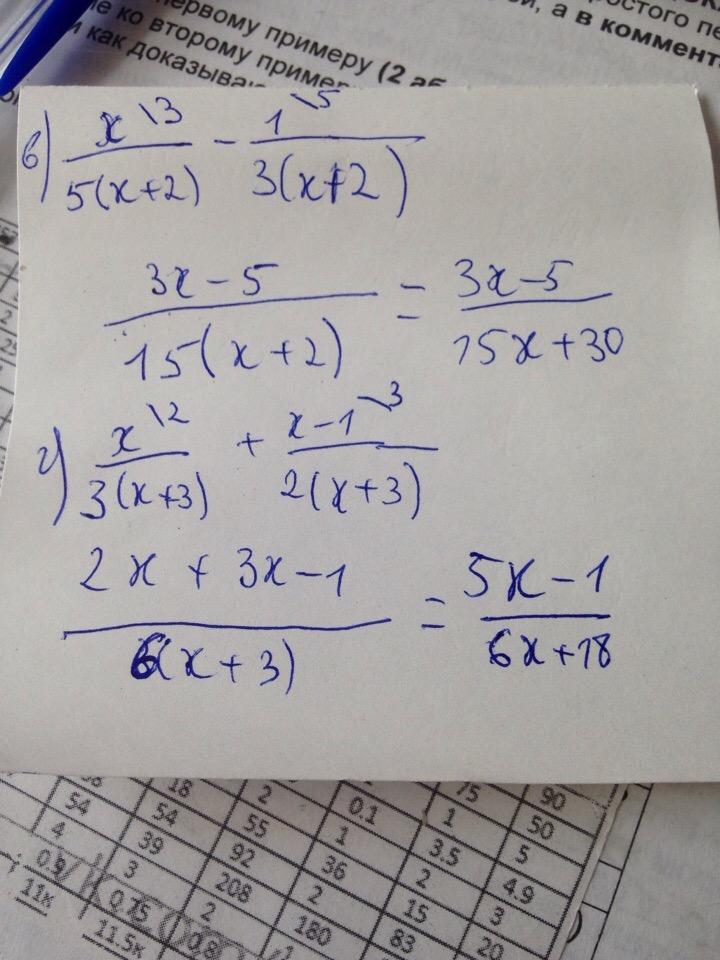 первому примеру (2 аб
ко второму пример
и как доказыва
остого пе
й, а в коммент
в) x\3/5(x+2) - 1\5/3(x+2)
3x-5/15(x+2) = 3x-5/15x+30
г) x\2/3(x+3) + x-1\3/2(x+3)
2x+3x-1/6(x+3) = 5x-1/6x+18
18 2 0.1 75 90
54 54 55 1 1 50
4 39 92 36 3.5 5
0.9 3 208 2 2 4.9
11к 0.75 2 180 15 3
11.5к 0.8 83 20